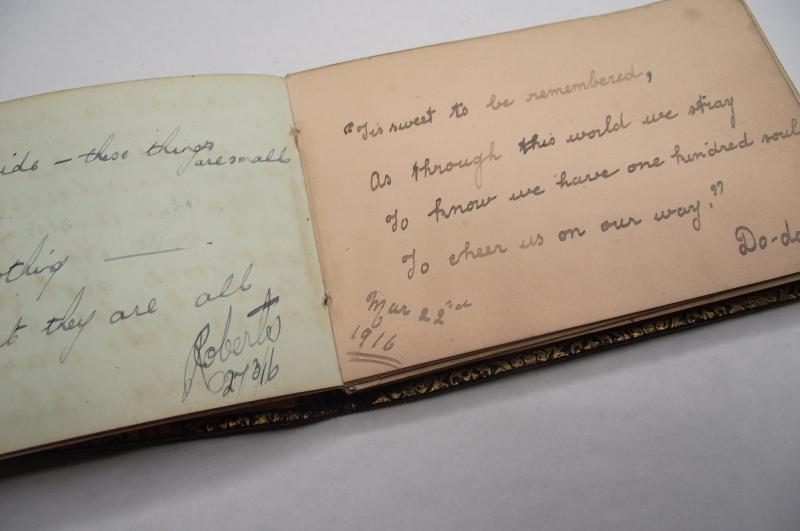 ide – these things
are small
othing ——.
t they are all
Roberts
27/3/16
"Tis sweet to be remembered,
As through this world we stray
To know we have one hundred soul
To cheer us on our way."
Do-do
Mar 22nd
1916